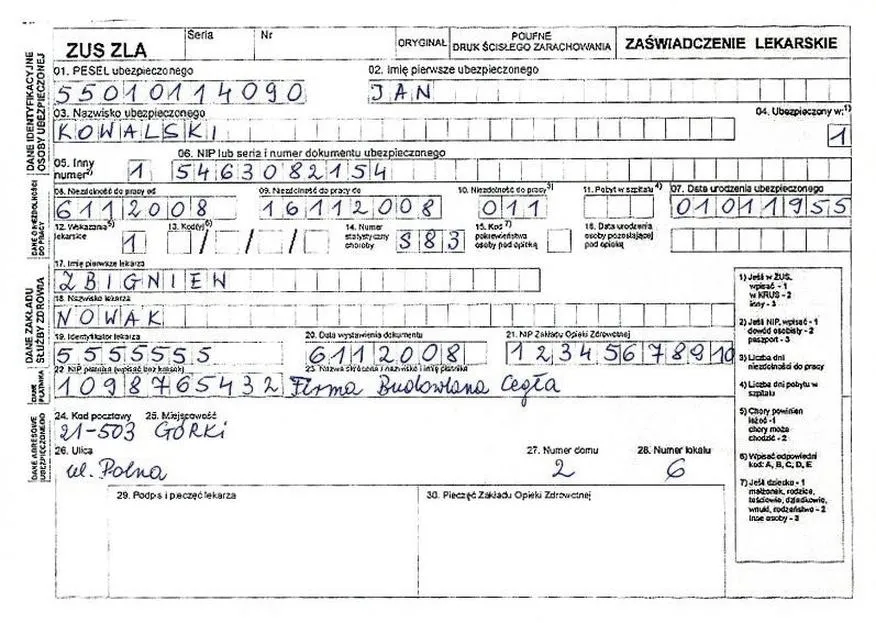 ZUS ZLA
Seria
Nr
ORYGINAŁ
POUFNE
DRUK ŚCISŁEGO ZARACHOWANIA
ZAŚWIADCZENIE LEKARSKIE
DANE IDENTYFIKACYJNE
OSOBY UBEZPIECZONEJ
01. PESEL ubezpieczonego
02. Imię pierwsze ubezpieczonego
55010114090
JAN
03. Nazwisko ubezpieczonego
04. Ubezpieczony w:1)
KOWALSKI
1
05. Inny
numer2)
1
06. NIP lub seria i numer dokumentu ubezpieczonego
5463082154
DANE O NIEZDOLNOŚCI
DO PRACY
08. Niezdolność do pracy od
09. Niezdolność do pracy do
10. Niezdolność do pracy3)
11. Pobyt w szpitalu4)
07. Data urodzenia ubezpieczonego
6112008
16112008
011
01011955
12. Wskazania5)
lekarskie
1
13. Kod(y)6)
/ / /
14. Numer
statystyczny
choroby
S83
15. Kod7)
pokrewieństwa
osoby pod opieką
16. Data urodzenia
osoby pozostającej
pod opieką
DANE ZAKŁADU
SŁUŻBY ZDROWIA
17. Imię pierwsze lekarza
ZBIGNIEW
18. Nazwisko lekarza
NOWAK
19. Identyfikator lekarza
20. Data wystawienia dokumentu
21. NIP Zakładu Opieki Zdrowotnej
5555555
6112008
12345678910
DANE
PŁATNIKA
22. NIP płatnika (wpisać bez kresek)
23. Nazwa skrócona / nazwisko i imię płatnika
1098765432
Firma Budowlana Cegła
DANE ADRESOWE
UBEZPIECZONEGO
24. Kod pocztowy
25. Miejscowość
21-503
GÓRKI
26. Ulica
27. Numer domu
28. Numer lokalu
ul. Polna
2
6
29. Podpis i pieczęć lekarza
30. Pieczęć Zakładu Opieki Zdrowotnej
1) Jeśli w ZUS,
wpisać - 1
w KRUS - 2
inny - 3
2) Jeśli NIP, wpisać - 1
dowód osobisty - 2
paszport - 3
3) Liczba dni
niezdolności do pracy
4) Liczba dni pobytu w
szpitalu
5) Chory powinien
leżeć - 1
chory może
chodzić - 2
6) Wpisać odpowiedni
kod: A, B, C, D, E
7) Jeśli dziecko - 1
małżonek, rodzice,
teściowie, dziadkowie,
wnuki, rodzeństwo - 2
inne osoby - 3